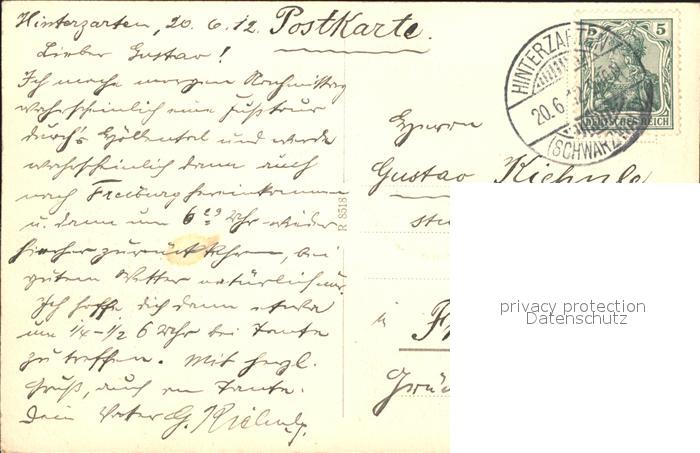 Hinterzarten, 20.6.12. Postkarte.
Lieber Gustav!
Ich mache morgen Nachmittag
wahrscheinlich eine Fußtour
durch's Höllental und werde
wahrscheinlich dann auch
nach Freiburg hereinkommen
u. dann um 6 29 Uhr wieder
hierher zurückkehren, bei
gutem Wetter natürlich nur.
Ich hoffe, dich dann etwa
um 1/4 – 1/2 6 Uhr bei Tante
zu treffen. Mit herzl.
Gruß, auch an Tante.
Dein Vater G. Kiehnle
R 8518
5 5
DEUTSCHES REICH
HINTERZARTEN
20.6.12
(SCHWARZW
Herrn
Gustav Kiehnle
stu
in F
Grü
privacy protection
Datenschutz